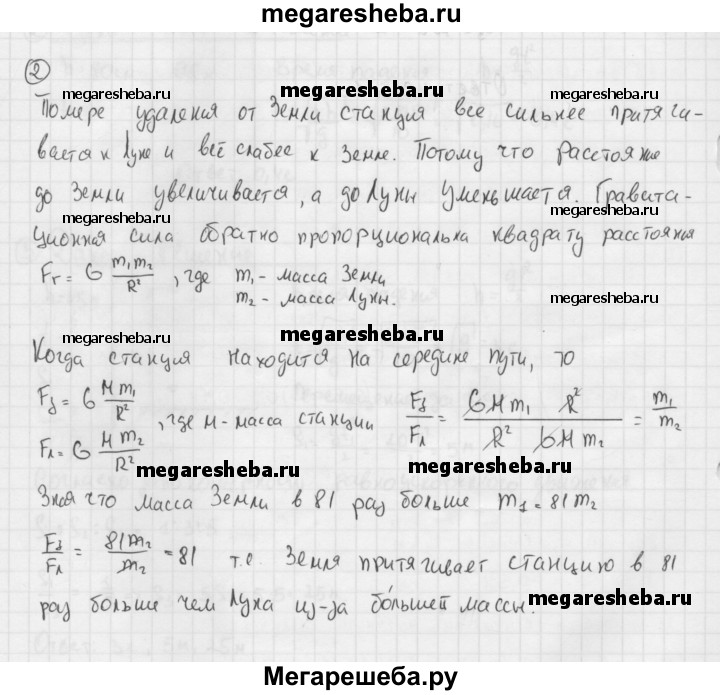 megaresheba.ru
②
megaresheba.ru megaresheba.ru megaresheba.ru
По мере удаления от Земли станция все сильнее притяги-
вается к Луне и всё слабее к Земле. Потому что расстояние
до Земли увеличивается, а до Луны уменьшается. Гравита-
megaresheba.ru megaresheba.ru megaresheba.ru
ционная сила обратно пропорциональна квадрату расстояния
Fг = G m₁m₂/R², где m₁ - масса Земли
m₂ - масса Луны.
megaresheba.ru megaresheba.ru megaresheba.ru
Когда станция находится на середине пути, то
Fз = G M m₁/R²
Fл = G M m₂/R², где M - масса станции Fз/Fл = G M m₁ R²/R² G M m₂ = m₁/m₂
megaresheba.ru megaresheba.ru megaresheba.ru
Зная что масса Земли в 81 раз больше m₁ = 81m₂
Fз/Fл = 81m₂/m₂ = 81 т.е. Земля притягивает станцию в 81
раз больше чем Луна из-за бо́льшей массы.
megaresheba.ru megaresheba.ru megaresheba.ru
Мегарешеба.ру